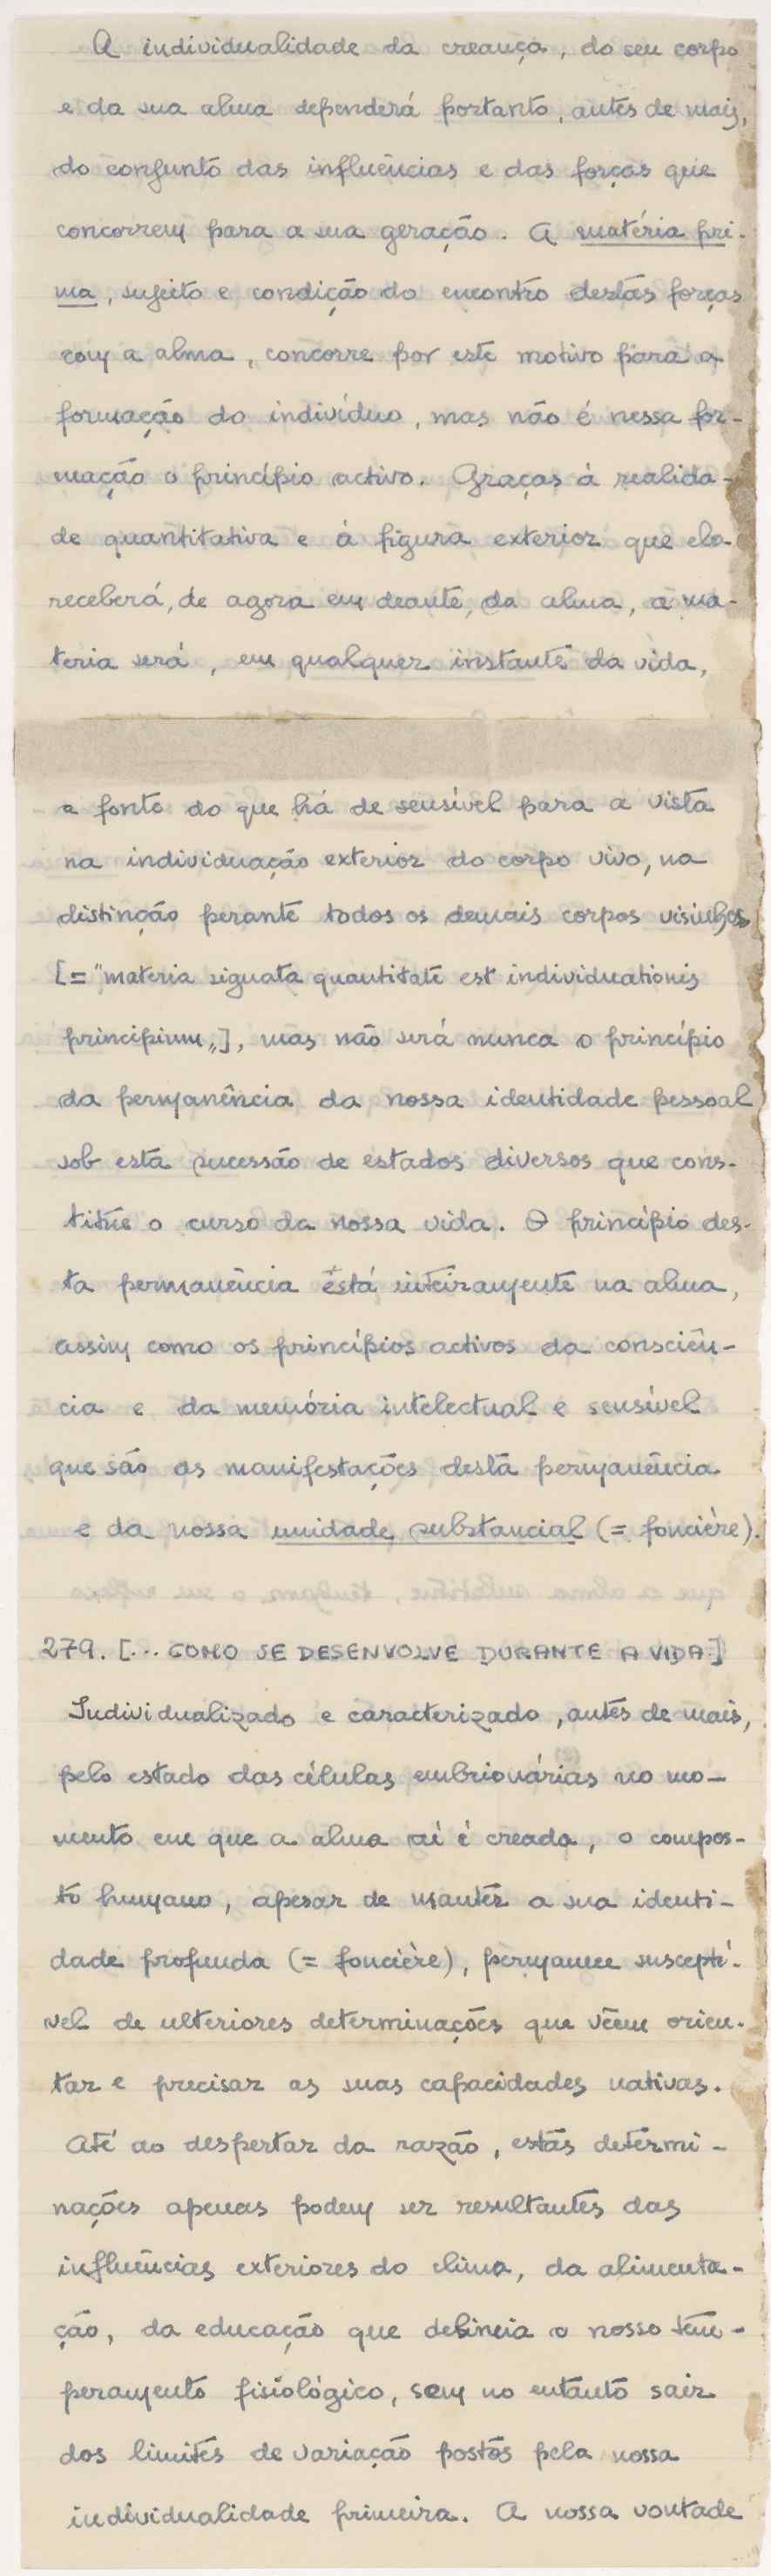 A individualidade da creança, do seu corpo
e da sua alma dependerá portanto, antes de mais,
do conjunto das influências e das forças que
concorrem para a sua geração. A matéria pri-
ma, sujeito e condição do encontro destas forças
com a alma, concorre por este motivo para a
formação do indivíduo, mas não é nessa for-
mação o princípio activo. Graças à realida-
de quantitativa e à figura exterior que ela
receberá, de agora em deante, da alma, a ma-
teria será, em qualquer instante da vida,
a fonte do que há de sensível para a vista
na individuação exterior do corpo vivo, na
distinção perante todos os demais corpos visinhos
[= "materia signata quantitate est individuationis
principium„], mas não será nunca o princípio
da permanência da nossa identidade pessoal
sob esta sucessão de estados diversos que cons-
titue o curso da nossa vida. O princípio des-
ta permanência está inteiramente na alma,
assim como os princípios activos da consciên-
cia e da memória intelectual e sensível
que são as manifestações desta permanência
e da nossa unidade substancial (= foncière).
279. [... COMO SE DESENVOLVE DURANTE A VIDA]
Individualizado e caracterizado, antes de mais,
pelo estado das células embrionárias no mo-
mento em que a alma aí é creada, o compos-
to humano, apesar de manter a sua identi-
dade profunda (= foncière), permanece susceptí-
vel de ulteriores determinações que vêem orien-
tar e precisar as suas capacidades nativas.
Até ao despertar da razão, estas determi-
nações apenas podem ser resultantes das
influências exteriores do clima, da alimenta-
ção, da educação que delineia o nosso tem-
peramento fisiológico, sem no entanto sair
dos limites de variação postos pela nossa
individualidade primeira. A nossa vontade